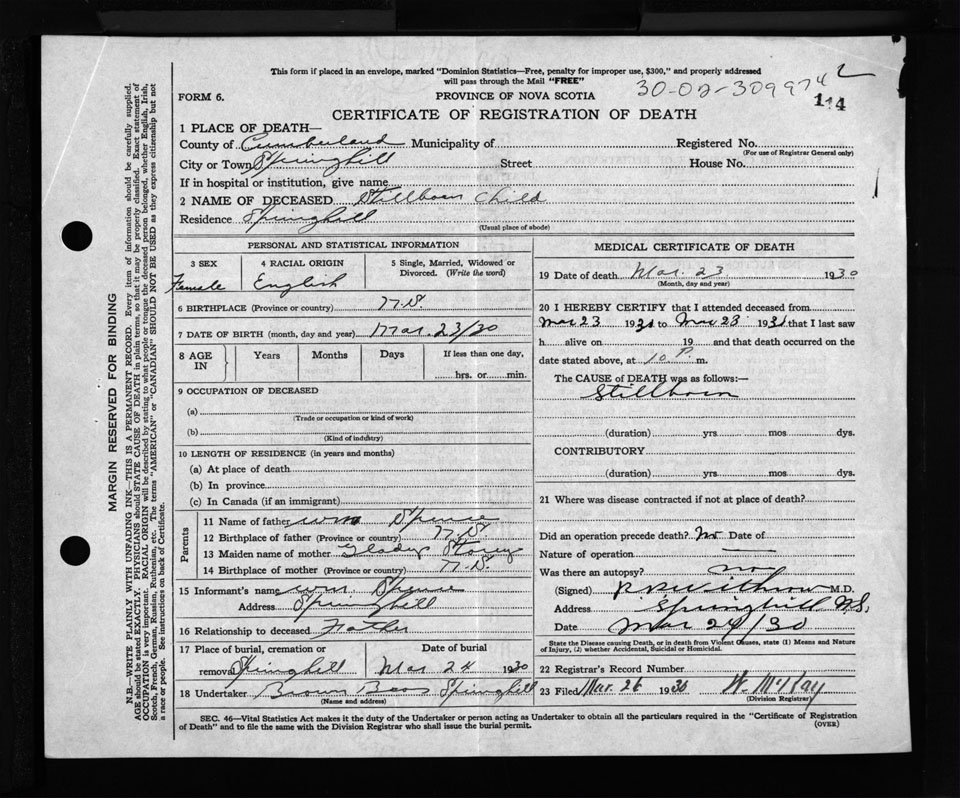 This form if placed in an envelope, marked "Dominion Statistics—Free, penalty for improper use, $300," and properly addressed
will pass through the Mail "FREE"
30-02-309974 2
114
FORM 6.
PROVINCE OF NOVA SCOTIA
CERTIFICATE OF REGISTRATION OF DEATH
1 PLACE OF DEATH—
County of Cumberland Municipality of Registered No.
(For use of Registrar General only)
City or Town Springhill Street House No.
If in hospital or institution, give name
2 NAME OF DECEASED Stillborn Child
Residence Springhill
(Usual place of abode)
PERSONAL AND STATISTICAL INFORMATION
3 SEX 4 RACIAL ORIGIN 5 Single, Married, Widowed or
Divorced. (Write the word)
Female English
6 BIRTHPLACE (Province or country) N.S.
7 DATE OF BIRTH (month, day and year) Mar. 23/30
8 AGE IN Years Months Days If less than one day,
hrs. or min.
9 OCCUPATION OF DECEASED
(a)
(Trade or occupation or kind of work)
(b)
(Kind of industry)
10 LENGTH OF RESIDENCE (in years and months)
(a) At place of death
(b) In province
(c) In Canada (if an immigrant)
Parents
11 Name of father Wm Spence
12 Birthplace of father (Province or country) N.S.
13 Maiden name of mother Gladys Storey
14 Birthplace of mother (Province or country) N.S.
15 Informant's name Wm. Spence
Address Springhill
16 Relationship to deceased Father
17 Place of burial, cremation or Date of burial
removal Springhill Mar 24 1930
18 Undertaker Brown Bros Springhill
(Name and address)
MEDICAL CERTIFICATE OF DEATH
19 Date of death Mar. 23 1930
(Month, day and year)
20 I HEREBY CERTIFY that I attended deceased from
Mar 23 1930 to Mar 23 1930 that I last saw
h alive on 19 and that death occurred on the
date stated above, at 10 P. m.
The CAUSE of DEATH was as follows:—
Stillborn
(duration) yrs mos dys.
CONTRIBUTORY
(duration) yrs mos dys.
21 Where was disease contracted if not at place of death?
Did an operation precede death? No Date of
Nature of operation
Was there an autopsy? no
(Signed) M.D.
Address Springhill N.S.
Date Mar 24/30
State the Disease causing Death, or in death from Violent Causes, state (1) Means and Nature
of Injury, (2) whether Accidental, Suicidal or Homicidal.
22 Registrar's Record Number
23 Filed Mar. 26 1930 W. McKay
(Division Registrar)
SEC. 46—Vital Statistics Act makes it the duty of the Undertaker or person acting as Undertaker to obtain all the particulars required in the "Certificate of Registration
of Death" and to file the same with the Division Registrar who shall issue the burial permit.
(OVER)
MARGIN RESERVED FOR BINDING
N.B.—WRITE PLAINLY WITH UNFADING INK—THIS IS A PERMANENT RECORD. Every item of information should be carefully supplied.
AGE should be stated EXACTLY. PHYSICIANS should STATE CAUSE OF DEATH in plain terms, so that it may be properly classified. Exact statement of
OCCUPATION is very important. RACIAL ORIGIN will be described by stating to what people or tongue the deceased person belonged, whether English, Irish,
Scotch, French, German, Russian, Ruthenian, etc. The terms "AMERICAN" or "CANADIAN" SHOULD NOT BE USED as they express citizenship but not
a race or people. See instructions on back of Certificate.